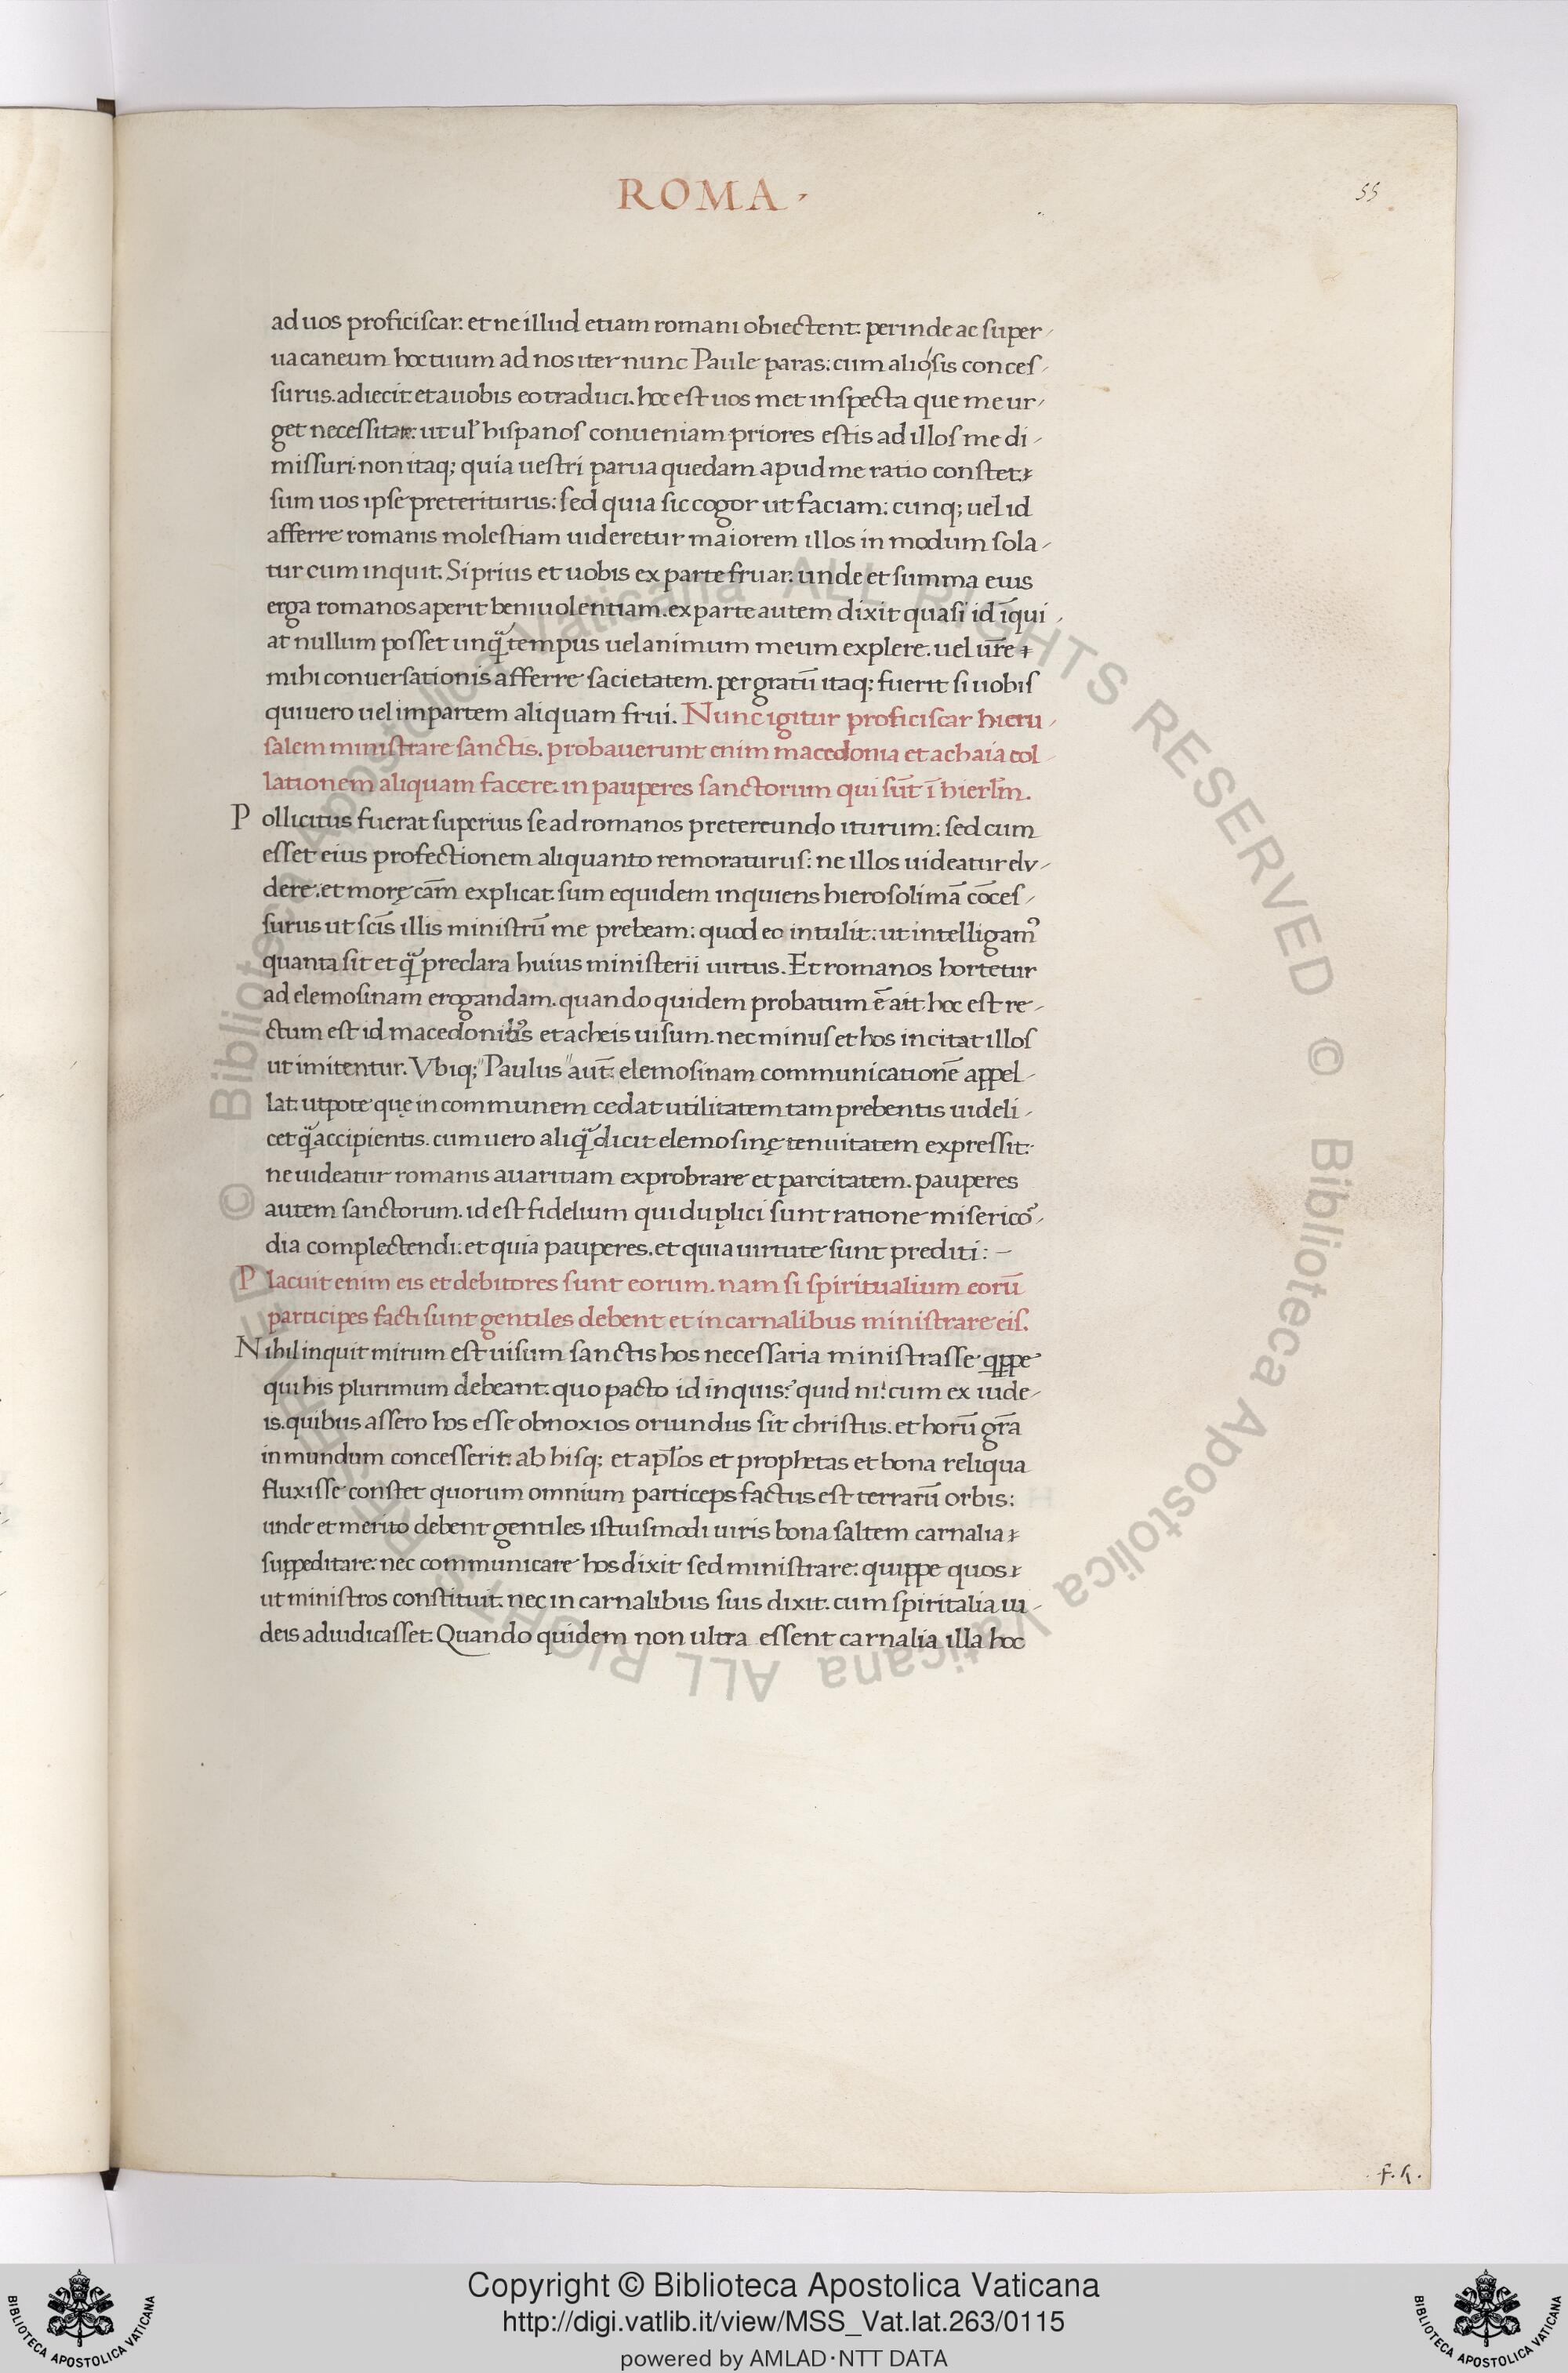 ROMA
55
ad uos proficiscar. et ne illud etiam romani obiectent: perinde ac super-
uacaneum hoc tuum ad nos iter nunc Paule paras: cum alio sis conces-
surus. adiecit: et a uobis eo traduci. hoc est uos met inspecta que me ur-
get necessitate: ut ul' hispanos conueniam priores estis ad illos me di-
missuri. non itaq; quia uestri parua quedam apud me ratio constet:
sum uos ipse preteriturus: sed quia sic cogor ut faciam: cunq; uel id
afferre romanis molestiam uideretur maiorem illos in modum sola-
tur cum inquit. Si prius et uobis ex parte fruar. unde et summa eius
erga romanos aperit beniuolentiam. ex parte autem dixit quasi id īqui-
at nullum posset unq̃ tempus uel animum meum explere. uel ur̄e
mihi conuersationis afferre sacietatem. per gratū itaq; fuerit si uobis
qui uero uel impartem aliquam frui. Nunc igitur proficiscar hieru-
salem ministrare sanctis. probauerunt enim macedonia et achaia col-
lationem aliquam facere. in pauperes sanctorum qui sūt ī hierl̄m.
Pollicitus fuerat superius se ad romanos pretereundo iturum: sed cum
esset eius profectionem aliquanto remoraturus: ne illos uideatur elu-
dere: et morę cām explicat. sum equidem inquiens hierosolimā cōces-
surus ut scīs illis ministrū me prebeam: quod eo intulit: ut intelligam9
quanta sit et q̃ preclara huius ministerii uirtus. Et romanos hortetur
ad elemosinam erogandam. quando quidem probatum ē ait. hoc est re-
ctum est id macedonib9 et acheis uisum. nec minus et hos incitat illos
ut imitentur. Vbiq; "Paulus "aut̄: elemosinam communicationē appel-
lat: utpote quę in communem cedat utilitatem tam prebentis uideli-
cet q̃ accipientis. cum uero aliq̃ dicit elemosinę tenuitatem expressit:
ne uideatur romanis auaritiam exprobrare et parcitatem. pauperes
autem sanctorum. id est fidelium qui duplici sunt ratione miserico2-
dia complectendi: et quia pauperes. et quia uirtute sunt prediti: –
Placuit enim eis et debitores sunt eorum. nam si spiritualium eorū
participes facti sunt gentiles debent et in carnalibus ministrare eis.
Nihil inquit mirum est uisum sanctis hos necessaria ministrasse q̱ppe
qui his plurimum debeant: quo pacto id inquis? quid ni! cum ex iude-
is. quibus assero hos esse obnoxios oriundus sit christus. et horū gr̄a
in mundum concesserit: ab hisq; et apl̄os et prophetas et bona reliqua
fluxisse constet quorum omnium particeps factus est terrarū orbis:
unde et merito debent gentiles istiusmodi uiris bona saltem carnalia
suppeditare: nec communicare hos dixit sed ministrare: quippe quos
ut ministros constituit. nec in carnalibus suis dixit. cum spiritalia iu-
deis adiudicasset. Quando quidem non ultra essent carnalia illa hoc
f. k.
© Biblioteca Apostolica Vaticana ALL RIGHTS RESERVED © Biblioteca Apostolica Vaticana ALL RIGHTS RESERVED
Copyright © Biblioteca Apostolica Vaticana
http://digi.vatlib.it/view/MSS_Vat.lat.263/0115
powered by AMLAD·NTT DATA
BIBLIOTECA APOSTOLICA VATICANA
BIBLIOTECA APOSTOLICA VATICANA